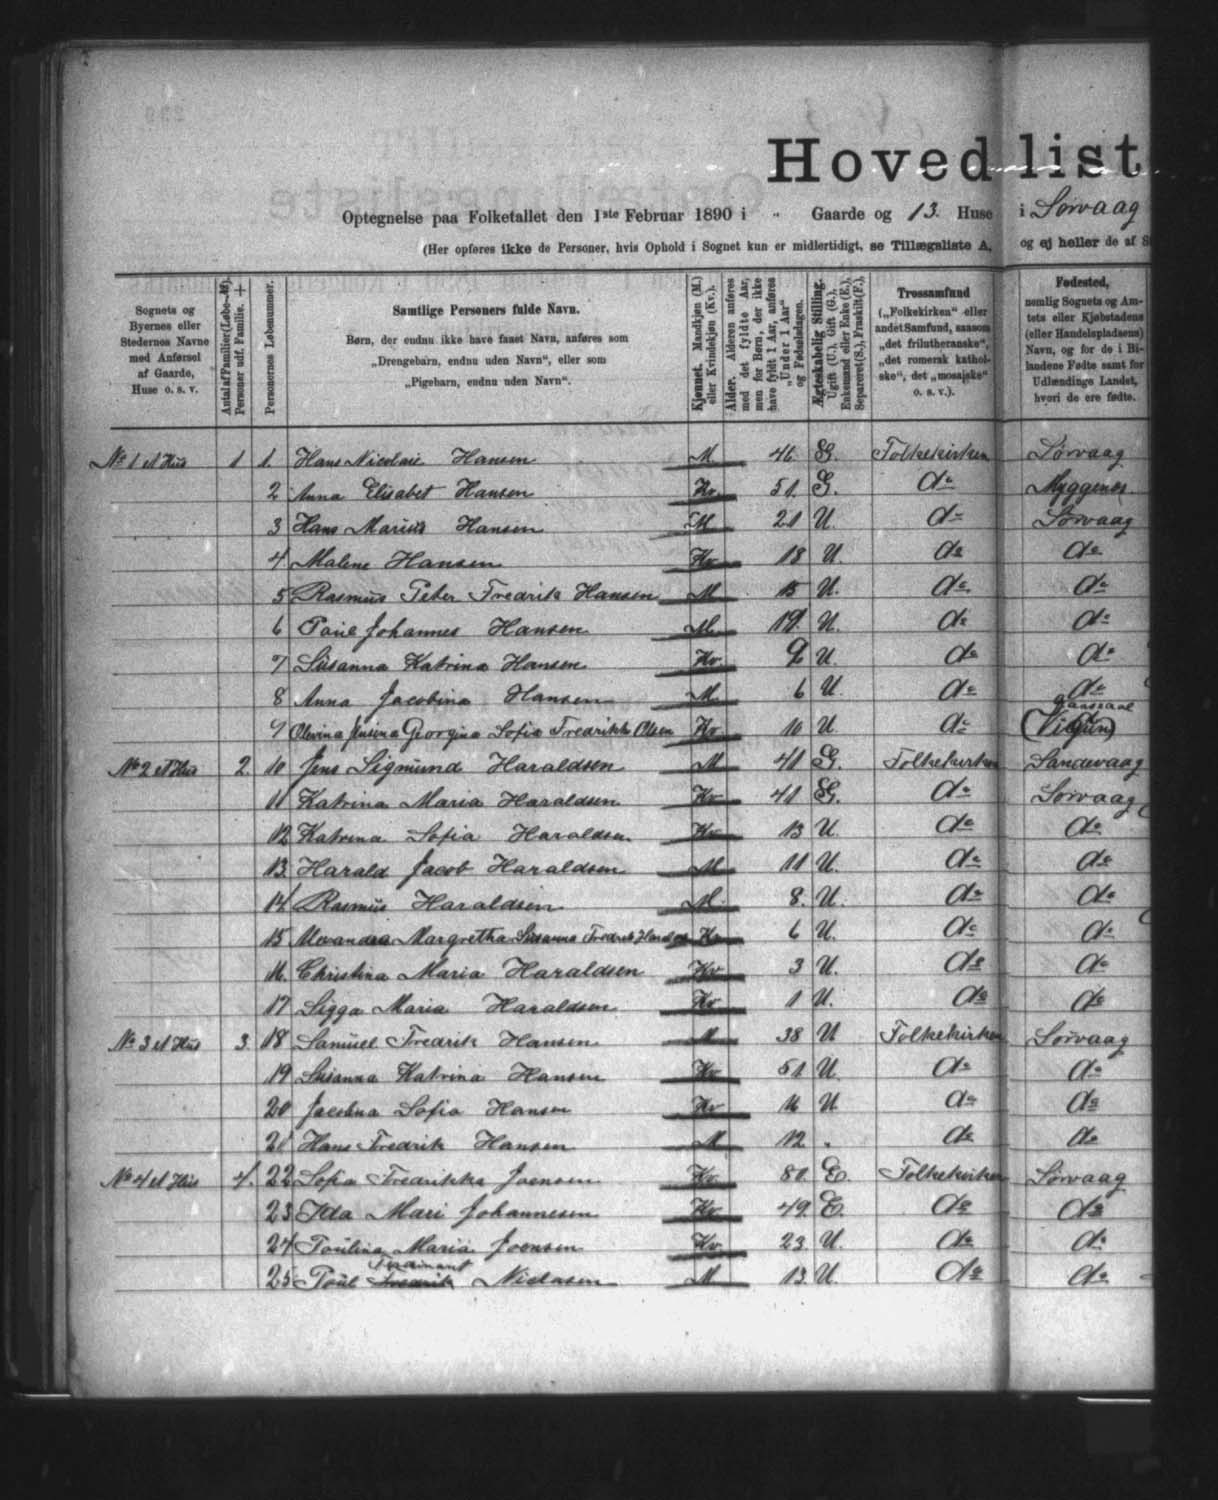 Hovedlist
Optegnelse paa Folketallet den 1ste Februar 1890 i " Gaarde og 13. Huse i Sørvaag
(Her opføres ikke de Personer, hvis Ophold i Sognet kun er midlertidigt, se Tillægsliste A, og ej heller de af S
Sognets og Byernes eller Stedernes Navne med Anførsel af Gaarde, Huse o. s. v.
Antal af Familier (Løbe-№). Personer udf. Familie. +
Personernes Løbenummer.
Samtlige Personers fulde Navn.
Børn, der endnu ikke have faaet Navn, anføres som
„Drengebarn, endnu uden Navn“, eller som
„Pigebarn, endnu uden Navn“.
Kjønnet. Mandkjøn (M.) eller Kvindekjøn (Kv.).
Alder. Alderen anføres med det fyldte Aar, men for Børn, der ikke have fyldt 1 Aar, anføres „Under 1 Aar“ og Fødselsdagen.
Ægteskabelig Stilling. Ugift (U.), Gift (G.), Enkemand eller Enke (E.), Separeret (S.), Fraskilt (F.),
Trossamfund („Folkekirken“ eller andet Samfund, saasom „det frilutheranske“, „det romersk katholske“, det „mosaiske“ o. s. v.).
Fødested, nemlig Sognets og Amtets eller Kjøbstadens (eller Handelspladsens) Navn, og for de i Bilandene Fødte samt for Udlændinge Landet, hvori de ere fødte.
No 1 et Hus 1 1. Hans Nicolaie Hansen M 46 G. Folkekirken Sørvaag
2 Anna Elisabet Hansen Kv. 51. G. do Myggenes
3 Hans Marius Hansen M 21 U. do Sørvaag
4 Malene Hansen Kv 18 U. do do
5 Rasmus Peter Fredrik Hansen M 15 U. do do
6 Poul Johannes Hansen M. U. do do
7 Susanna Katrina Hansen Kv. 9 U. do do
8 Anna Jacobina Hansen M 6 U. do do
9 Olevina Jensina Georgina Sofia Fredrikke Olsen Kv. 10 U. do
No 2 et Hus 2. 10 Jens Sigmund Haraldsen M 41 G. Folkekirken Sandevaag
11 Katrina Maria Haraldsen Kv 41 G. do Sørvaag
12 Katrina Sofia Haraldsen Kv 13 U. do do
13. Harald Jacob Haraldsen M 11 U. do do
14 Rasmus Haraldsen M. 8. U. do do
15 Margretha Susanna Fredrik Kv 6 U. do do
16. Christina Maria Haraldsen Kv 3 U. do do
17 Sigga Maria Haraldsen Kv 1 U. do do
No 3 et Hus 3. 18 Samuel Fredrik Hansen M 38 U Folkekirken Sørvaag
19 Susanna Katrina Hansen Kv 51 U. do do
20 Jacobina Sofia Hansen Kv 16 U do do
21 Hans Fredrik Hansen M 12 " do do
No 4 et Hus 4. 22 Sofia Fredrikka Joensen Kv. 80. E. Folkekirken Sørvaag
23 Ida Mari Johannesen Kv. 49. E. do do
24 Poulina Maria Joensen Kv. 23 U. do do
Ferdinant
25 Poul Fredrik Niclasen M 13. U. do do